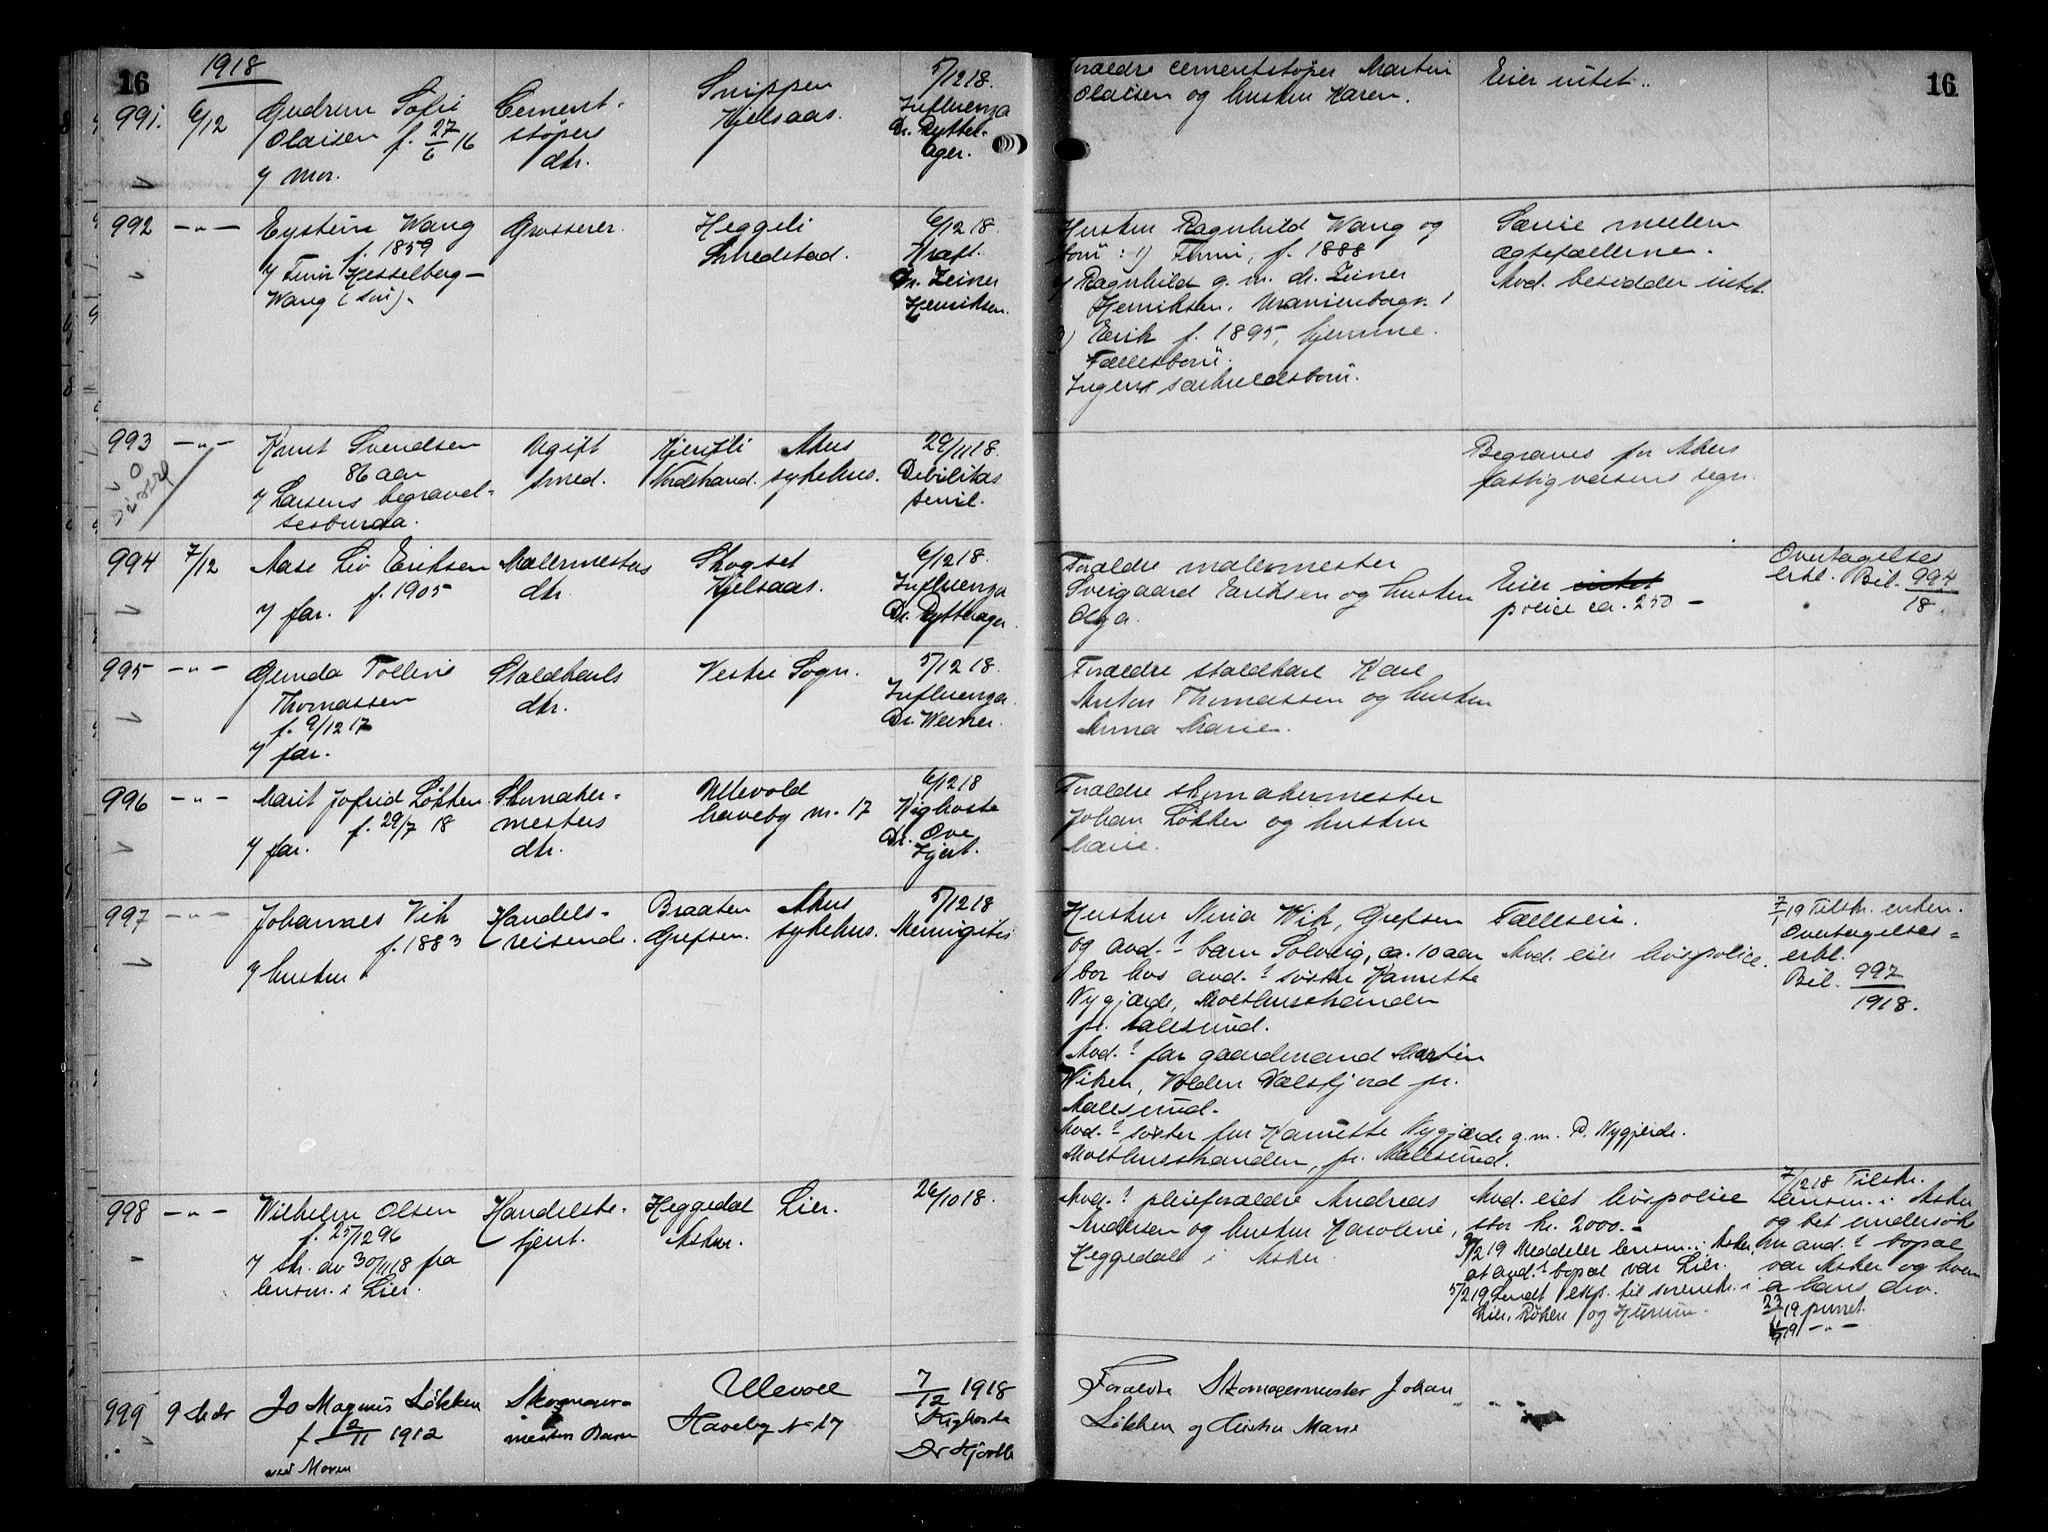 16
1918
991. 6/12 Gudrun Sofie
Olaisen f. 27/6 16
v/ mor.
Cement-
støpers
dtr.
Snippen
Kjelsaas.
5/12 18.
Influenza
Dr. Rytter-
ager.
Forældre cementstøper Martin
Olaisen og hustru Karen.
Eier intet..
16
992 —"— Eystein Wang
f. 1859
v/ Finn Hesselberg-
Wang (søn).
Grosserer.
Heggeli
Smedstad.
6/12 18.
Kraft.
Dr. Zeiner
Henriksen.
Hustru Ragnhild Wang og
børn: 1) Finn, f. 1888
2) Ragnhild g. m. dr. Zeiner
Henriksen, Uranienborgv. 1
3) Erik f. 1895, hjemme.
Fællesbørn.
Ingen særkuldsbørn.
Særeie mellem
ægtefællerne.
Avd. besidder intet.
993 —"— Knut Svendsen
86 aar
v/ Larsens begravel-
sesburaa.
Ugift
smed.
Kjensli
Nordstrand.
Akers
sykehus.
29/11 18.
Debilitas
senil.
Begraves for Akers
fattigvæsens regn.
994 7/12 Aase Liv Eriksen
f. 1905
v/ far.
Malermesters
dtr.
Skogset
Kjelsaas.
6/12 18.
Influenza
Dr. Rytterager.
Forældre malermester
Sverigaard Eriksen og hustru
Olga.
Eier intet
police ca. 250 —
Overtagelses
erkl. Bil. 994/18.
995 —"— Gunda Polline
Thomassen
f. 9/12 17
v/ far.
Staldkarls
dtr.
Vestre Sogn.
5/12 18.
Influenza.
Dr. Werner.
Forældre staldkarl Karl
Anton Thomassen og hustru
Anna Marie.
996 —"— Marit Jofrid Løkken
f. 29/7 18
v/ far.
Skomaker-
mesters
dtr.
Ullevold
haveby nr. 17
6/12 18
Kighoste
Dr. Ove
Hjort.
Forældre skomakermester
Johan Løkken og hustru
Marie.
997 —"— Johannes Vik
f. 1883
v/ hustru
Handels-
reisende.
Braaten
Grefsen.
Akers
sykehus.
5/12 18
Meningitis
Hustru Nina Wik, Grefsen
og avd.? barn Solveig, ca. 10 aar
bor hos avd.? søster Hanette
Nygjærde, Molthusstranden
pr. Aalesund.
Avd.? far gaardmand Martin
Wiken, Volden Valsfjord pr.
Aalesund.
Avd.? søster fru Hanette Nygjærde g. m. P. Nygjerde.
Molthusstranden, pr. Aalesund.
Fælleseie.
Avd. eier livspolice.
7/1 19 Tilstr. erken.
Overtagelses=
erkl.
Bil. 997/1918.
998 —"— Wilhelm Olsen
f. 25/12 96
v/ skr. av 30/11 18 fra
lensm. i Lier.
Handelsbe-
tjent.
Heggedal
Asker.
Lier.
26/10 18.
Avd.? pleieforældre Andreas
Andersen og hustru Karoline,
Heggedal i Asker
Avd. eiet livspolice
stor kr. 2000.-
3/2 19 Meddeler lensm. i Asker,
at avd.? bopæl var Lier.
5/2 19 Sendt eksp. til sorenskr. i
Lier, Røken og Hurum.
7/12 18 Tilskr.
lensm. i Asker
og bet undersøke
om avd.? bopæl
var Asker og hvem
er hans arv.
23/ 19 purret
19 —"—
999 9 Mdr Jo Magnus Løkken
f 2/11 1912
ved Moren
Skomager-
mesters Barn
Ullevoll
Haveby N- 17
7/12 1918
Kighoste
Dr Hjorth
Forældre Skomagermester Johan
Løkken og Hustru Marie